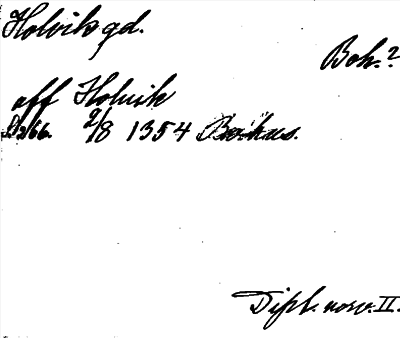 Holvik gd.
Boh.?
aff Holuik
S. 266. 2/8 1354 Bohus.
Dipl. norv. II.